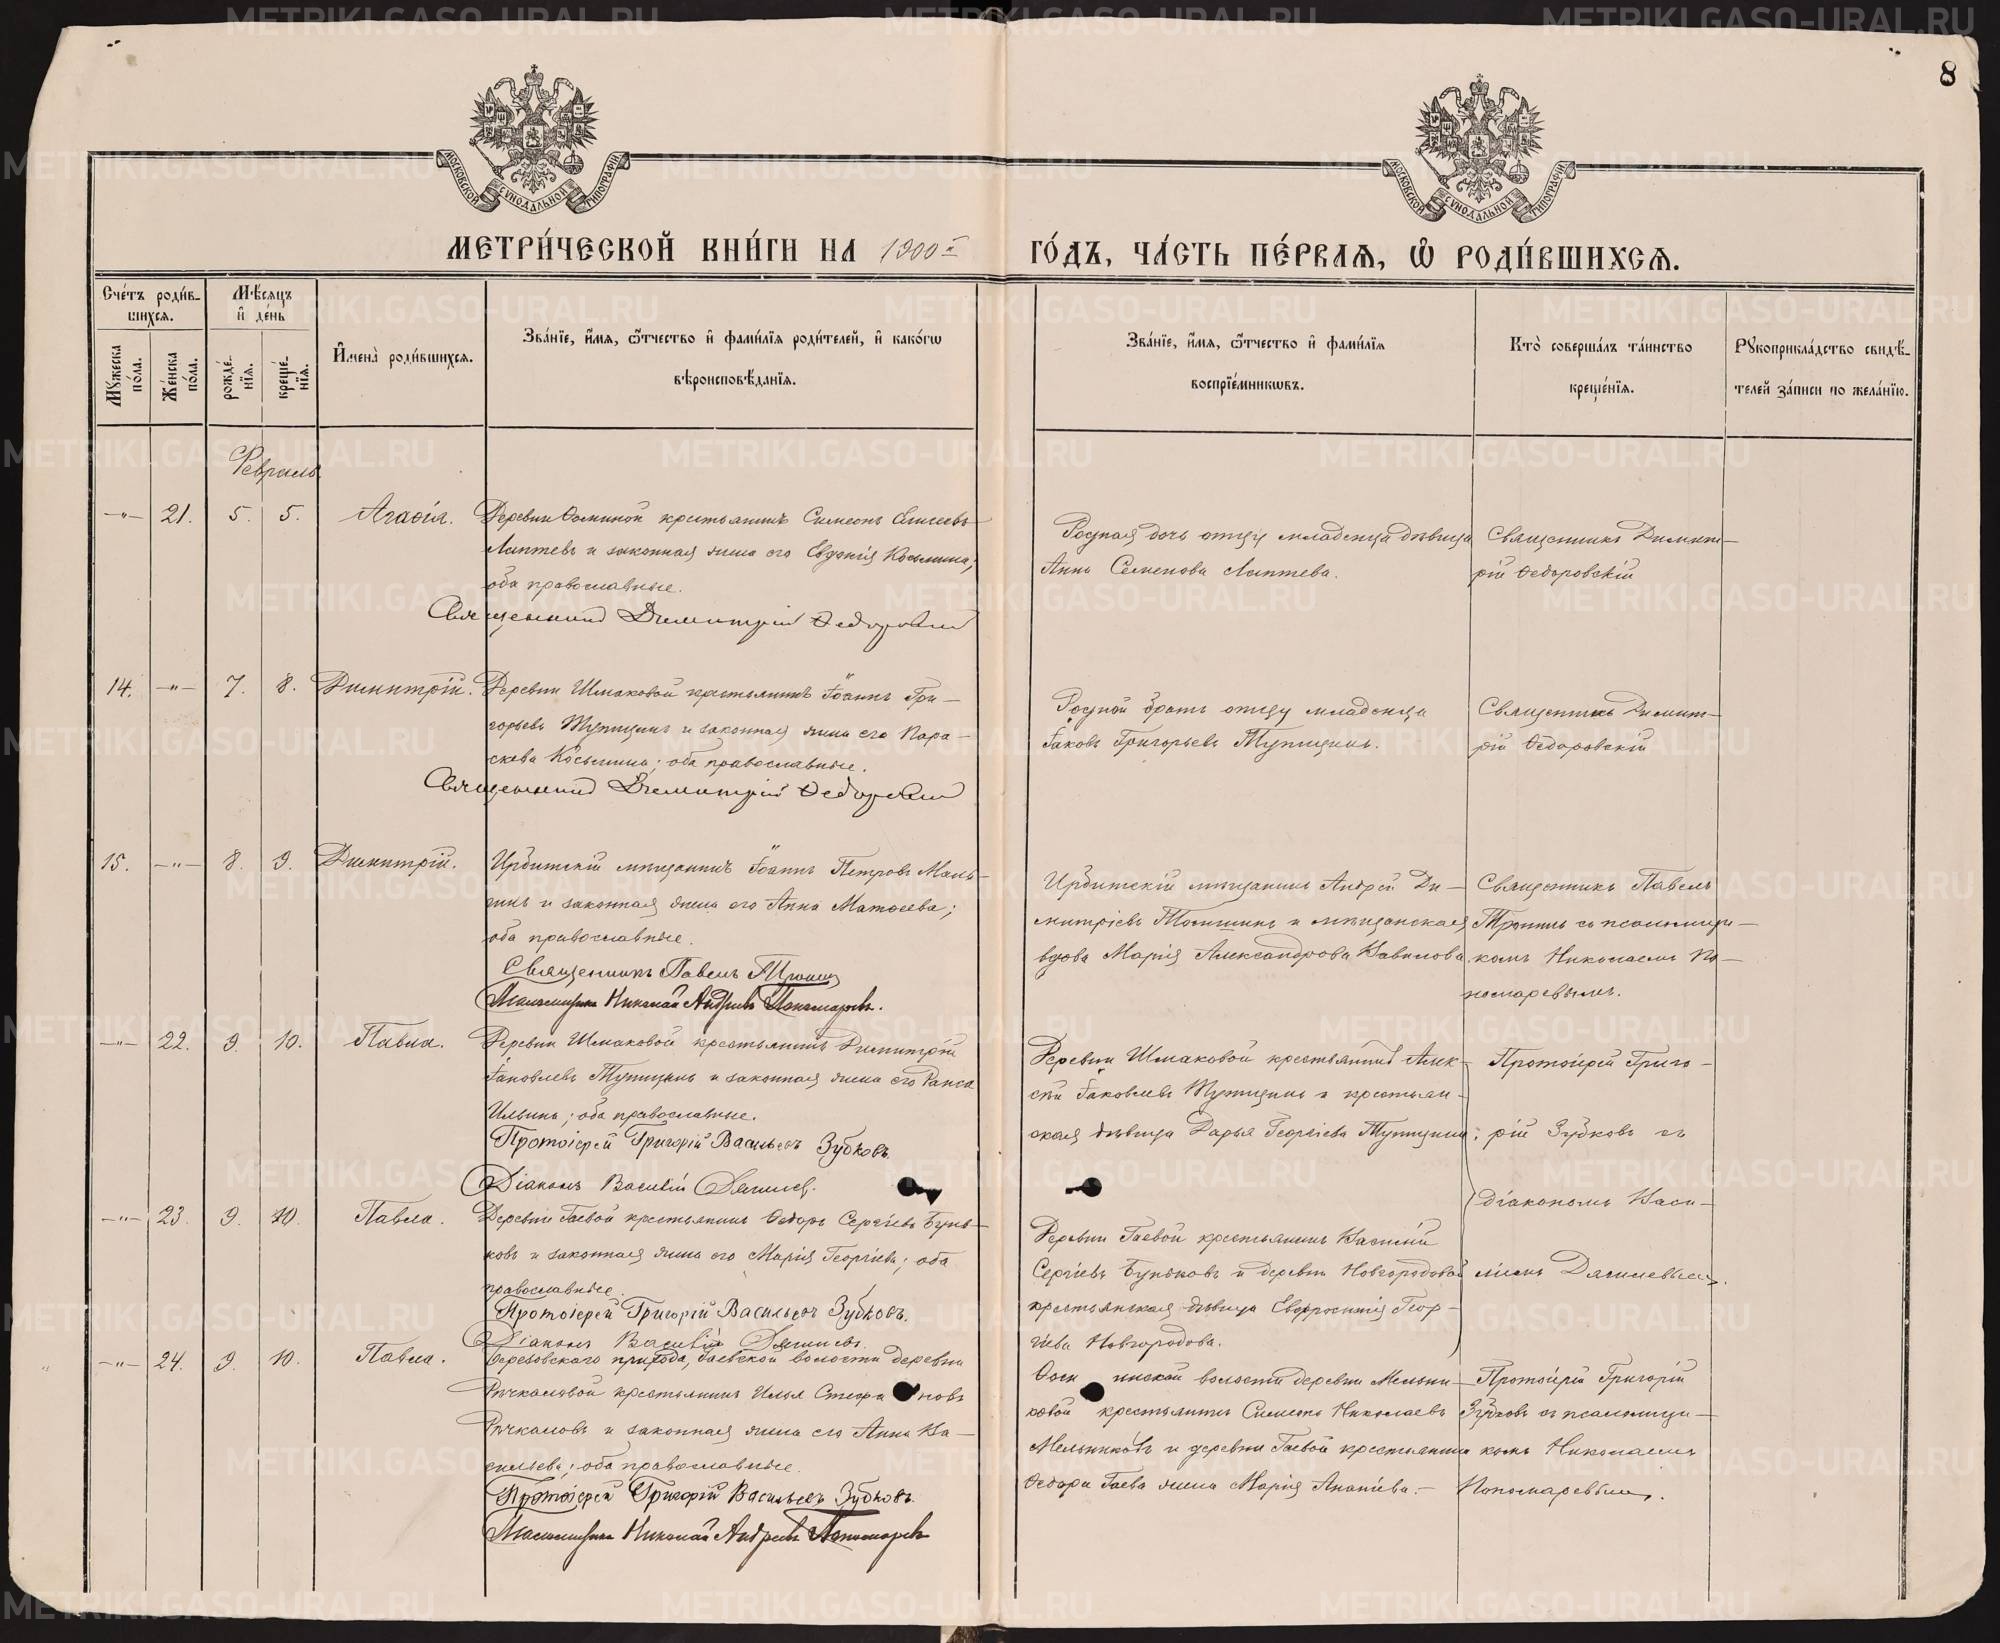 8
МОСКОВСКОЙ СѴНОДАЛЬНОЙ ТИПОГРАФІИ
МОСКОВСКОЙ СѴНОДАЛЬНОЙ ТИПОГРАФІИ
МЕТРИ́ЧЕСКОЙ КНИ́ГИ НА 1900й ГО́ДЪ, ЧА́СТЬ ПЕ́РВАѦ, Ѡ҆ РОДИ́ВШИХСѦ.
Сче́тъ роди́в-
шихсѧ.
Мꙋ́жеска по́ла.
Же́нска по́ла.
Мѣ́сѧцъ
и҆ де́нь
рожде́-
нїѧ.
креще́-
нїѧ.
И҆мена̀ роди́вшихсѧ.
Зва́нїе, и҆́мѧ, ѻ҆́тчество и҆ фами́лїѧ роди́телей, и҆ како́гѡ
вѣроисповѣ́данїѧ.
Зва́нїе, и҆́мѧ, ѻ҆́тчество и҆ фами́лїѧ
воспрїе́мникѡвъ.
Кто̀ соверша́лъ та́инство
креще́нїѧ.
Рꙋкоприкла́дство свидѣ́-
телей за́писи по жела́нїю.
Февраль
-"- 21. 5. 5. Агаѳія.
Деревни Ѳоминой крестьянинъ Симеонъ Елисеевъ
Лаптевъ и законная жена его Евдокія Косьмина;
оба православные.
Священникъ Димитрій Ѳедоровскій
Родная дочь отцу младенца дѣвица
Анна Семенова Лаптева.
Священникъ Димит-
рій Ѳедоровскій
14. -"- 7. 8. Димитрій.
Деревни Шмаковой крестьянинъ Іоаннъ Гри-
горьевъ Тупицынъ и законная жена его Пара-
скева Косьмина; оба православные.
Священникъ Димитрій Ѳедоровскій
Родной братъ отцу младенца
Іаковъ Григорьевъ Тупицынъ.
Священникъ Димит-
рій Ѳедоровскій
15. -"- 8. 9. Димитрій.
Ирбитскій мѣщанинъ Іоаннъ Петровъ
и законная жена его Анна Матѳеева;
оба православные.
Священникъ Павелъ
Псаломщикъ Николай Андреевъ Пономаревъ.
Ирбитскій мѣщанинъ Андрей Ди-
митріевъ и мѣщанская
вдова Марія Александрова Вавилова.
Священникъ Павелъ
съ псаломщи-
комъ Николаемъ По-
номаревымъ.
-"- 22. 9. 10. Павла.
Деревни Шмаковой крестьянинъ Димитрій
Іаковлевъ Тупицынъ и законная жена его Раиса
Ильина; оба православные.
Протоіерей Григорій Васильевъ Зубковъ.
Діаконъ Василій
Деревни Шмаковой крестьянинъ Алек-
сѣй Іаковлевъ Тупицынъ и крестьян-
ская дѣвица Дарья Георгіева Тупицына;
Протоіерей Григо-
рій Зубковъ съ
діакономъ Васи-
-"- 23. 9. 10. Павла.
Деревни Гаевой крестьянинъ Ѳедоръ Сергіевъ Бунь-
ковъ и законная жена его Марія Георгіева; оба
православные.
Протоіерей Григорій Васильевъ Зубковъ.
Діаконъ Василій
Деревни Гаевой крестьянинъ Василій
Сергіевъ Буньковъ и деревни Новгородовой
крестьянская дѣвица Евфросинія Геор-
гіева Новгородова.
ліемъ
-"- 24. 9. 10. Павла.
Березовскаго прихода, Гаевской волости деревни
Речкаловой крестьянинъ Илья Стефановъ
Речкаловъ и законная жена его Анна Ва-
сильева; оба православные.
Протоіерей Григорій Васильевъ Зубковъ.
Псаломщикъ Николай Андреевъ Пономаревъ
волости деревни Мельни-
ковой крестьянинъ Симеонъ Николаевъ
Мельниковъ и деревни Гаевой крестьянина
Ѳедора Гаева жена Марія Ананіева.-
Протоіерей Григорій
Зубковъ съ псаломщи-
комъ Николаемъ
Пономаревымъ.
METRIKI.GASO-URAL.RU